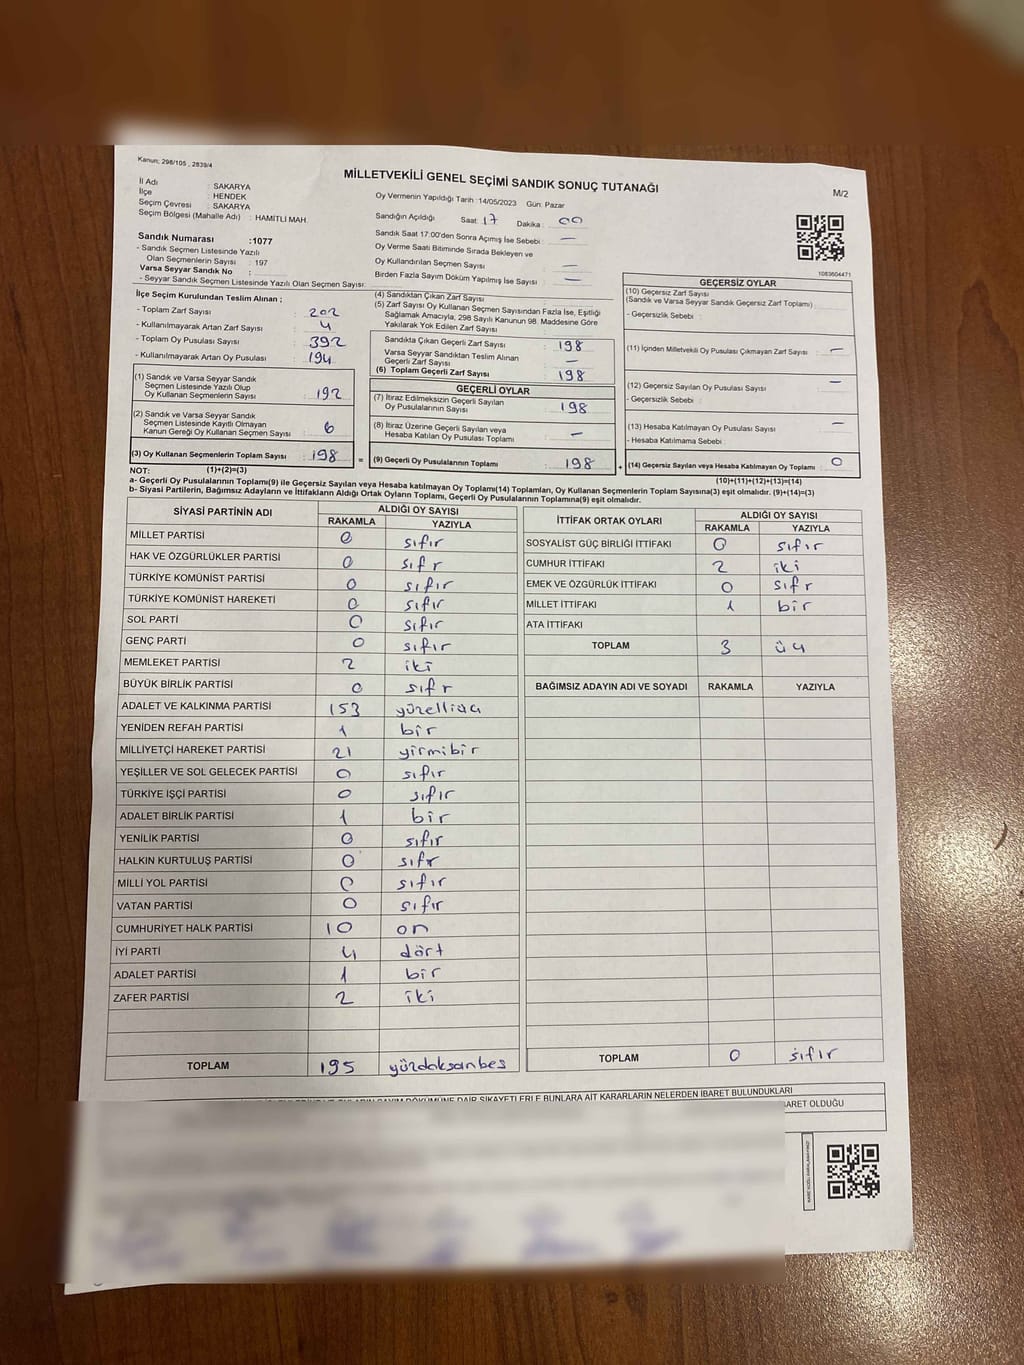 Kanun; 298/105 , 2839/4
MİLLETVEKİLİ GENEL SEÇİMİ SANDIK SONUÇ TUTANAĞI
M/2
İl Adı : SAKARYA
İlçe : HENDEK
Seçim Çevresi : SAKARYA
Seçim Bölgesi (Mahalle Adı) : HAMİTLİ MAH.
Sandık Numarası :1077
- Sandık Seçmen Listesinde Yazılı
Olan Seçmenlerin Sayısı : 197
Varsa Seyyar Sandık No :
- Seyyar Sandık Seçmen Listesinde Yazılı Olan Seçmen Sayısı:
Oy Vermenin Yapıldığı Tarih :14/05/2023 Gün: Pazar
Sandığın Açıldığı Saat: 17 Dakika : 00
Sandık Saat 17:00'den Sonra Açımış İse Sebebi : —
Oy Verme Saati Bitiminde Sırada Bekleyen ve
Oy Kullandırılan Seçmen Sayısı : —
Birden Fazla Sayım Döküm Yapılmış İse Sayısı : —
1083604471
İlçe Seçim Kurulundan Teslim Alınan ;
- Toplam Zarf Sayısı : 202
- Kullanılmayarak Artan Zarf Sayısı : 4
- Toplam Oy Pusulası Sayısı : 392
- Kullanılmayarak Artan Oy Pusulası : 194
(1) Sandık ve Varsa Seyyar Sandık
Seçmen Listesinde Yazılı Olup
Oy Kullanan Seçmenlerin Sayısı : 192
(2) Sandık ve Varsa Seyyar Sandık
Seçmen Listesinde Kayıtlı Olmayan
Kanun Gereği Oy Kullanan Seçmen Sayısı : 6
(3) Oy Kullanan Seçmenlerin Toplam Sayısı : 198
(4) Sandıktan Çıkan Zarf Sayısı
(5) Zarf Sayısı Oy Kullanan Seçmen Sayısından Fazla İse, Eşitliği
Sağlamak Amacıyla, 298 Sayılı Kanunun 98. Maddesine Göre
Yakılarak Yok Edilen Zarf Sayısı :
Sandıkta Çıkan Geçerli Zarf Sayısı : 198
Varsa Seyyar Sandıktan Teslim Alınan
Geçerli Zarf Sayısı : —
(6) Toplam Geçerli Zarf Sayısı : 198
GEÇERLİ OYLAR
(7) İtiraz Edilmeksizin Geçerli Sayılan
Oy Pusulalarının Sayısı : 198
(8) İtiraz Üzerine Geçerli Sayılan veya
Hesaba Katılan Oy Pusulası Toplamı : —
= (9) Geçerli Oy Pusulalarının Toplamı : 198
GEÇERSİZ OYLAR
(10) Geçersiz Zarf Sayısı
(Sandık ve Varsa Seyyar Sandık Geçersiz Zarf Toplamı)
- Geçersizlik Sebebi :
(11) İçinden Milletvekili Oy Pusulası Çıkmayan Zarf Sayısı : —
(12) Geçersiz Sayılan Oy Pusulası Sayısı : —
- Geçersizlik Sebebi :
(13) Hesaba Katılmayan Oy Pusulası Sayısı : —
- Hesaba Katılmama Sebebi :
+ (14) Geçersiz Sayılan veya Hesaba Katılmayan Oy Toplamı : 0
NOT: (1)+(2)=(3) (10)+(11)+(12)+(13)=(14)
a- Geçerli Oy Pusulalarının Toplamı(9) ile Geçersiz Sayılan veya Hesaba katılmayan Oy Toplamı(14) Toplamları, Oy Kullanan Seçmenlerin Toplam Sayısına(3) eşit olmalıdır. (9)+(14)=(3)
b- Siyasi Partilerin, Bağımsız Adayların ve İttifakların Aldığı Ortak Oyların Toplamı, Geçerli Oy Pusulalarının Toplamına(9) eşit olmalıdır.
SİYASİ PARTİNİN ADI ALDIĞI OY SAYISI
RAKAMLA YAZIYLA
MİLLET PARTİSİ 0 sıfır
HAK VE ÖZGÜRLÜKLER PARTİSİ 0 sıfr
TÜRKİYE KOMÜNİST PARTİSİ 0 sıfır
TÜRKİYE KOMÜNİST HAREKETİ 0 sıfır
SOL PARTİ 0 sıfır
GENÇ PARTİ 0 sıfır
MEMLEKET PARTİSİ 2 iki
BÜYÜK BİRLİK PARTİSİ 0 sıfr
ADALET VE KALKINMA PARTİSİ 153 yüzelliüç
YENİDEN REFAH PARTİSİ 1 bir
MİLLİYETÇİ HAREKET PARTİSİ 21 yirmibir
YEŞİLLER VE SOL GELECEK PARTİSİ 0 sıfır
TÜRKİYE İŞÇİ PARTİSİ 0 sıfır
ADALET BİRLİK PARTİSİ 1 bir
YENİLİK PARTİSİ 0 sıfır
HALKIN KURTULUŞ PARTİSİ 0 sıfr
MİLLİ YOL PARTİSİ 0 sıfır
VATAN PARTİSİ 0 sıfır
CUMHURİYET HALK PARTİSİ 10 on
İYİ PARTİ 4 dört
ADALET PARTİSİ 1 bir
ZAFER PARTİSİ 2 iki
TOPLAM 195 yüzdoksanbeş
İTTİFAK ORTAK OYLARI ALDIĞI OY SAYISI
RAKAMLA YAZIYLA
SOSYALİST GÜÇ BİRLİĞİ İTTİFAKI 0 sıfır
CUMHUR İTTİFAKI 2 iki
EMEK VE ÖZGÜRLÜK İTTİFAKI 0 sıfr
MİLLET İTTİFAKI 1 bir
ATA İTTİFAKI
TOPLAM 3 üç
BAĞIMSIZ ADAYIN ADI VE SOYADI RAKAMLA YAZIYLA
TOPLAM 0 sıfır
DAİR ŞİKAYETLERLE BUNLARA AİT KARARLARIN NELERDEN İBARET BULUNDUKLARI
OLDUĞU